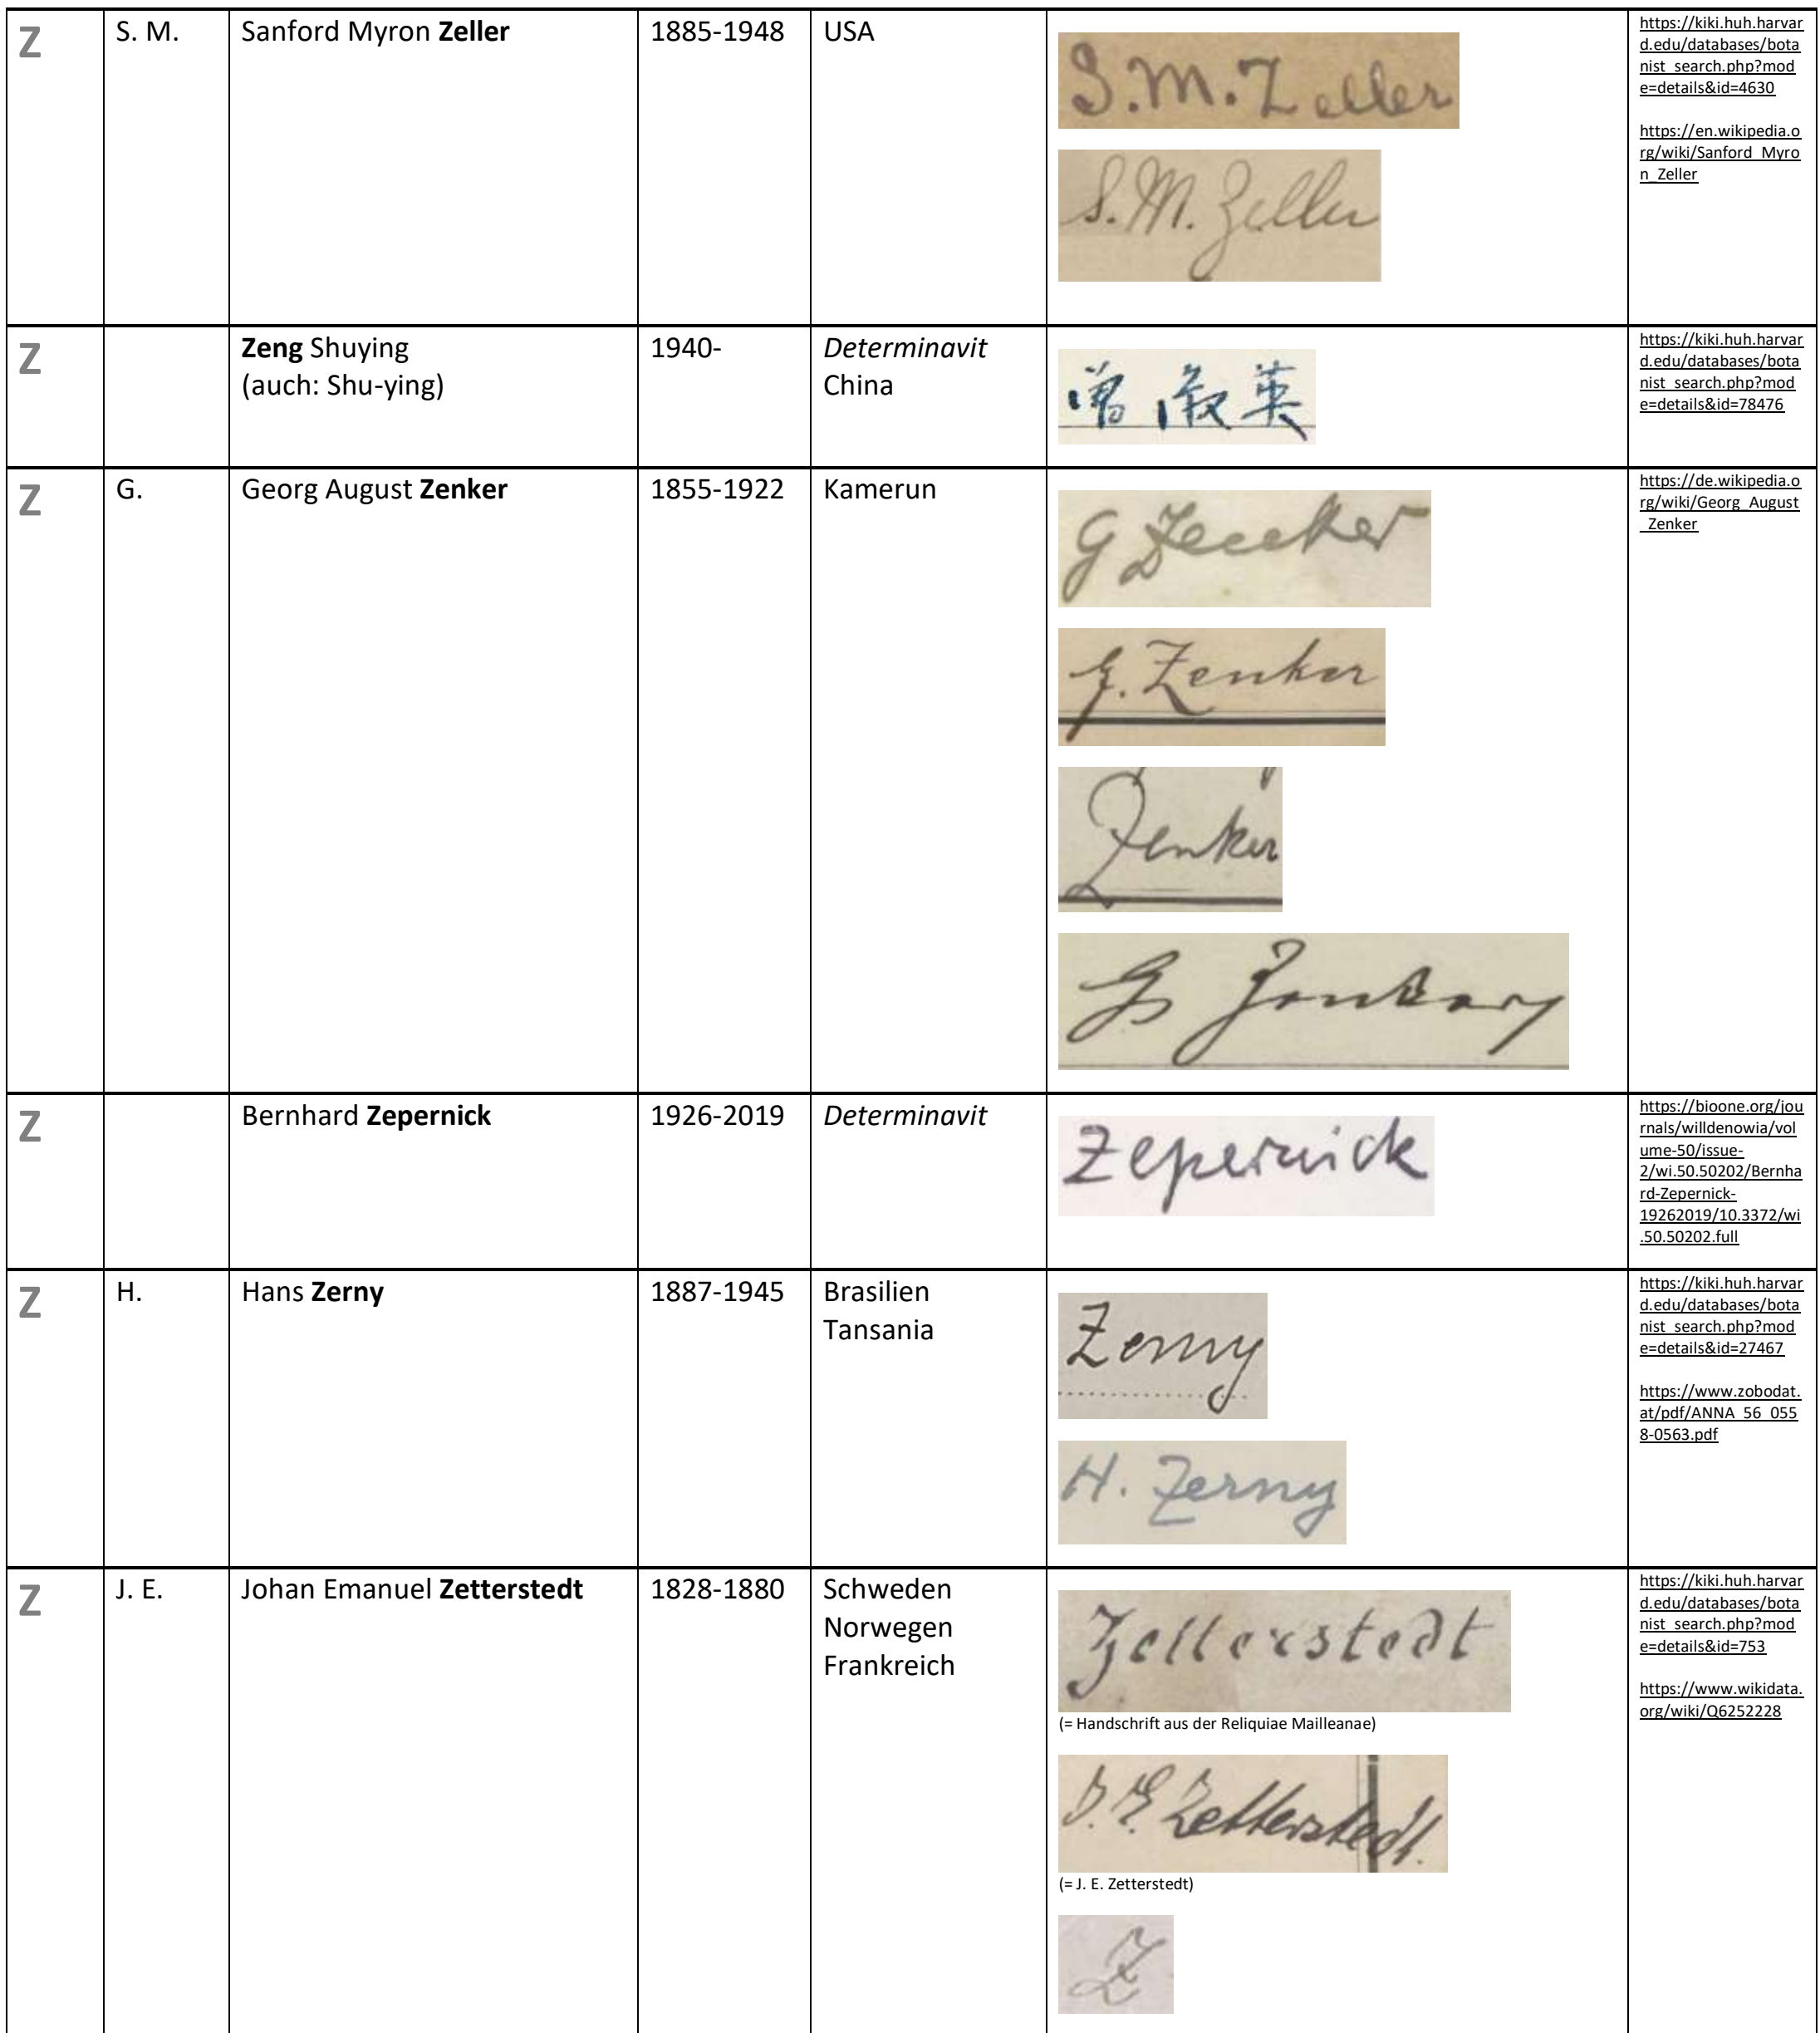 Z
S. M.
Sanford Myron Zeller
1885-1948
USA
S. M. Zeller
S. M. Zeller
https://kiki.huh.harvar
d.edu/databases/bota
nist_search.php?mod
e=details&id=4630
https://en.wikipedia.o
rg/wiki/Sanford_Myro
n_Zeller
Z
Zeng Shuying
(auch: Shu-ying)
1940-
Determinavit
China
曾淑英
https://kiki.huh.harvar
d.edu/databases/bota
nist_search.php?mod
e=details&id=78476
Z
G.
Georg August Zenker
1855-1922
Kamerun
G Zenker
G. Zenker
Zenker
G Zenker
https://de.wikipedia.o
rg/wiki/Georg_August
_Zenker
Z
Bernhard Zepernick
1926-2019
Determinavit
Zepernick
https://bioone.org/jou
rnals/willdenowia/vol
ume-50/issue-
2/wi.50.50202/Bernha
rd-Zepernick-
19262019/10.3372/wi
.50.50202.full
Z
H.
Hans Zerny
1887-1945
Brasilien
Tansania
Zerny
H. Zerny
https://kiki.huh.harvar
d.edu/databases/bota
nist_search.php?mod
e=details&id=27467
https://www.zobodat.
at/pdf/ANNA_56_055
8-0563.pdf
Z
J. E.
Johan Emanuel Zetterstedt
1828-1880
Schweden
Norwegen
Frankreich
Zetterstedt
(= Handschrift aus der Reliquiae Mailleanae)
J. E. Zetterstedt.
(= J. E. Zetterstedt)
Z
https://kiki.huh.harvar
d.edu/databases/bota
nist_search.php?mod
e=details&id=753
https://www.wikidata.
org/wiki/Q6252228